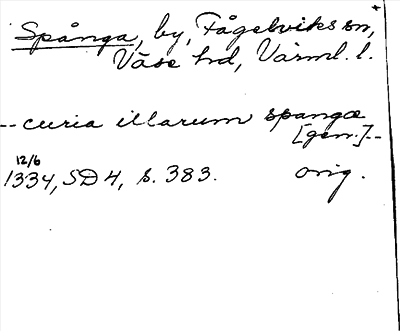 Spånga, by, Fågelviks sn,
Väse hd, Värml. l.
-- curia illarum spangæ
[gen.]--
12/6
1334, SD 4, s. 383. orig.